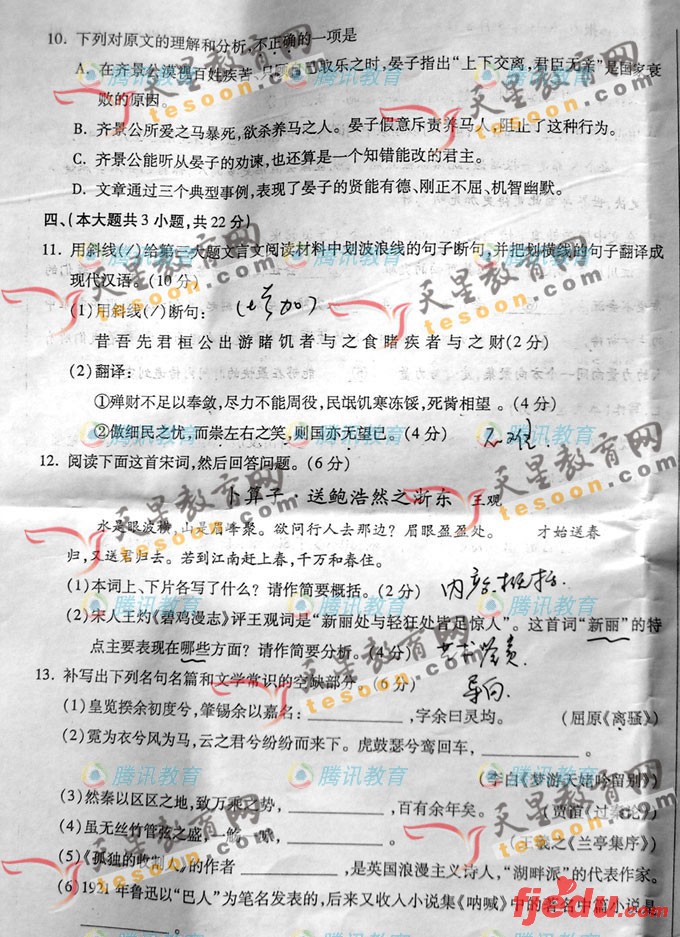 10. 下列对原文的理解和分析，不正确的一项是
A. 在齐景公漠视百姓疾苦、只顾取乐之时，晏子指出“上下交离，君臣无亲”是国家衰
败的原因。
B. 齐景公所爱之马暴死，欲杀养马之人。晏子假意斥责养马人，阻止了这种行为。
C. 齐景公能听从晏子的劝谏，也还算是一个知错能改的君主。
D. 文章通过三个典型事例，表现了晏子的贤能有德、刚正不屈、机智幽默。
四、（本大题共3小题，共22分）
11. 用斜线(/)给第三大题文言文阅读材料中划波浪线的句子断句，并把划横线的句子翻译成
现代汉语。(10分)
(1)用斜线(/)断句：
昔吾先君桓公出游睹饥者与之食睹疾者与之财(2分)
(2)翻译：
①殚财不足以奉敛，尽力不能周役，民氓饥寒冻馁，死胔相望。(4分)
②傲细民之忧，而崇左右之笑，则国亦无望已。(4分)
12. 阅读下面这首宋词，然后回答问题。(6分)
卜算子·送鲍浩然之浙东 王观
水是眼波横，山是眉峰聚。欲问行人去那边？眉眼盈盈处。 才始送春
归，又送君归去。若到江南赶上春，千万和春住。
(1)本词上、下片各写了什么？请作简要概括。(2分) 内容概括.
(2)宋人王灼《碧鸡漫志》评王观词是“新丽处与轻狂处皆足惊人”。这首词“新丽”的特
点主要表现在哪些方面？请作简要分析。(4分)
导向.
13. 补写出下列名句名篇和文学常识的空缺部分。(6分)
(1)皇览揆余初度兮，肇锡余以嘉名：________，字余曰灵均。 (屈原《离骚》)
(2)霓为衣兮风为马，云之君兮纷纷而来下。虎鼓瑟兮鸾回车，________。
(李白《梦游天姥吟留别》)
(3)然秦以区区之地，致万乘之势，________，百有余年矣。 (贾谊《过秦论》)
(4)虽无丝竹管弦之盛，一觞一咏，________。 (王羲之《兰亭集序》)
(5)《孤独的收割人》的作者________，是英国浪漫主义诗人，“湖畔派”的代表作家。
(6)1921年鲁迅以“巴人”为笔名发表的，后来又收入小说集《呐喊》中的著名中篇小说是
________。
天星教育网
tesoon.com
腾讯教育
fjedu.com